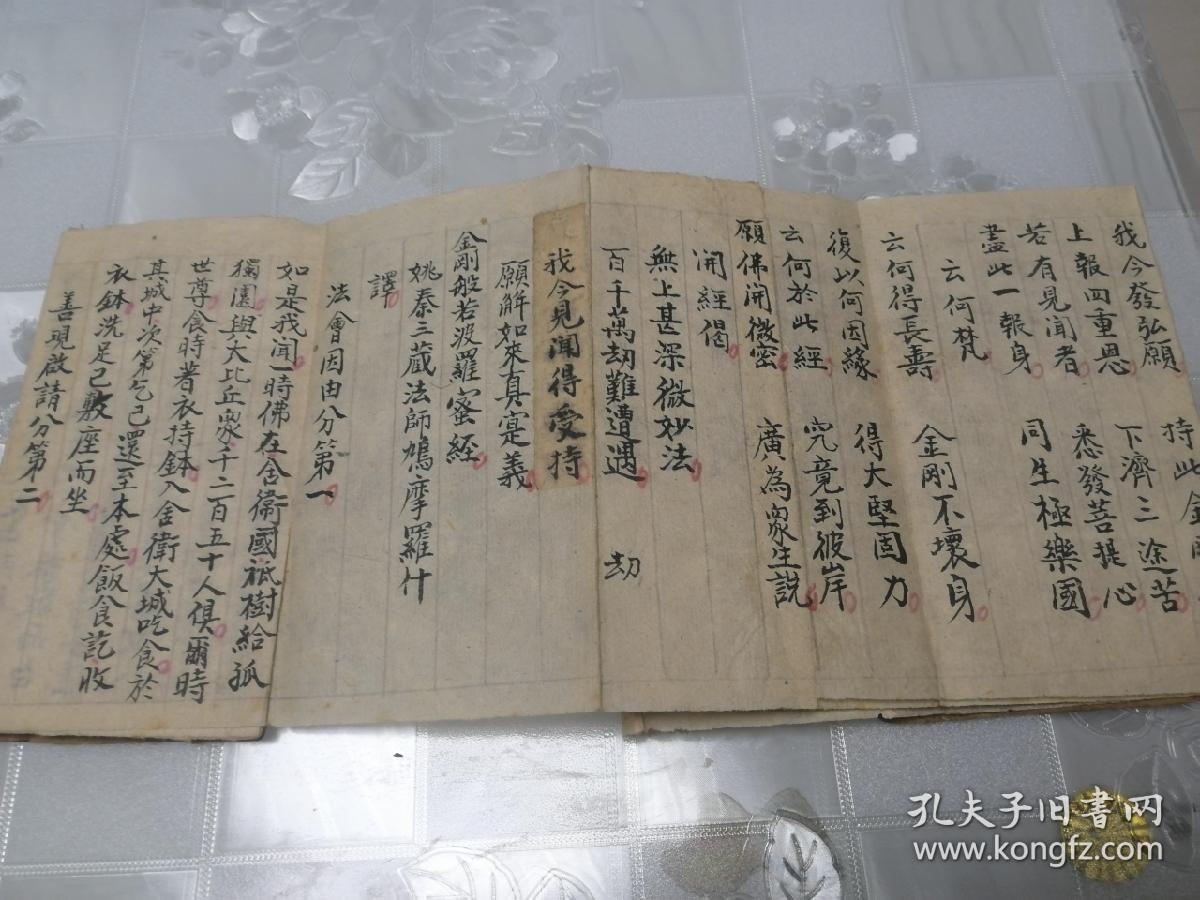 我今發弘願 持此金
上報四重恩 下濟三途苦
若有見聞者 悉發菩提心
盡此一報身 同生極樂國
云何梵
云何得長壽 金剛不壞身
復以何因緣 得大堅固力
云何於此經 究竟到彼岸
願佛開微密 廣為眾生說
開經偈
無上甚深微妙法
百千萬劫難遭遇 劫
我今見聞得受持
願解如來真寔義
金剛般若波羅蜜經
姚秦三藏法師鳩摩羅什
譯
法會因由分第一
如是我聞一時佛在舍衛國祇樹給孤
獨園與大比丘眾千二百五十人俱爾時
世尊食時著衣持鉢入舍衛大城吃食於
其城中次第乞已還至本處飯食訖收
衣鉢洗足已敷座而坐
善現啟請分第二
孔夫子旧书网
www.kongfz.com